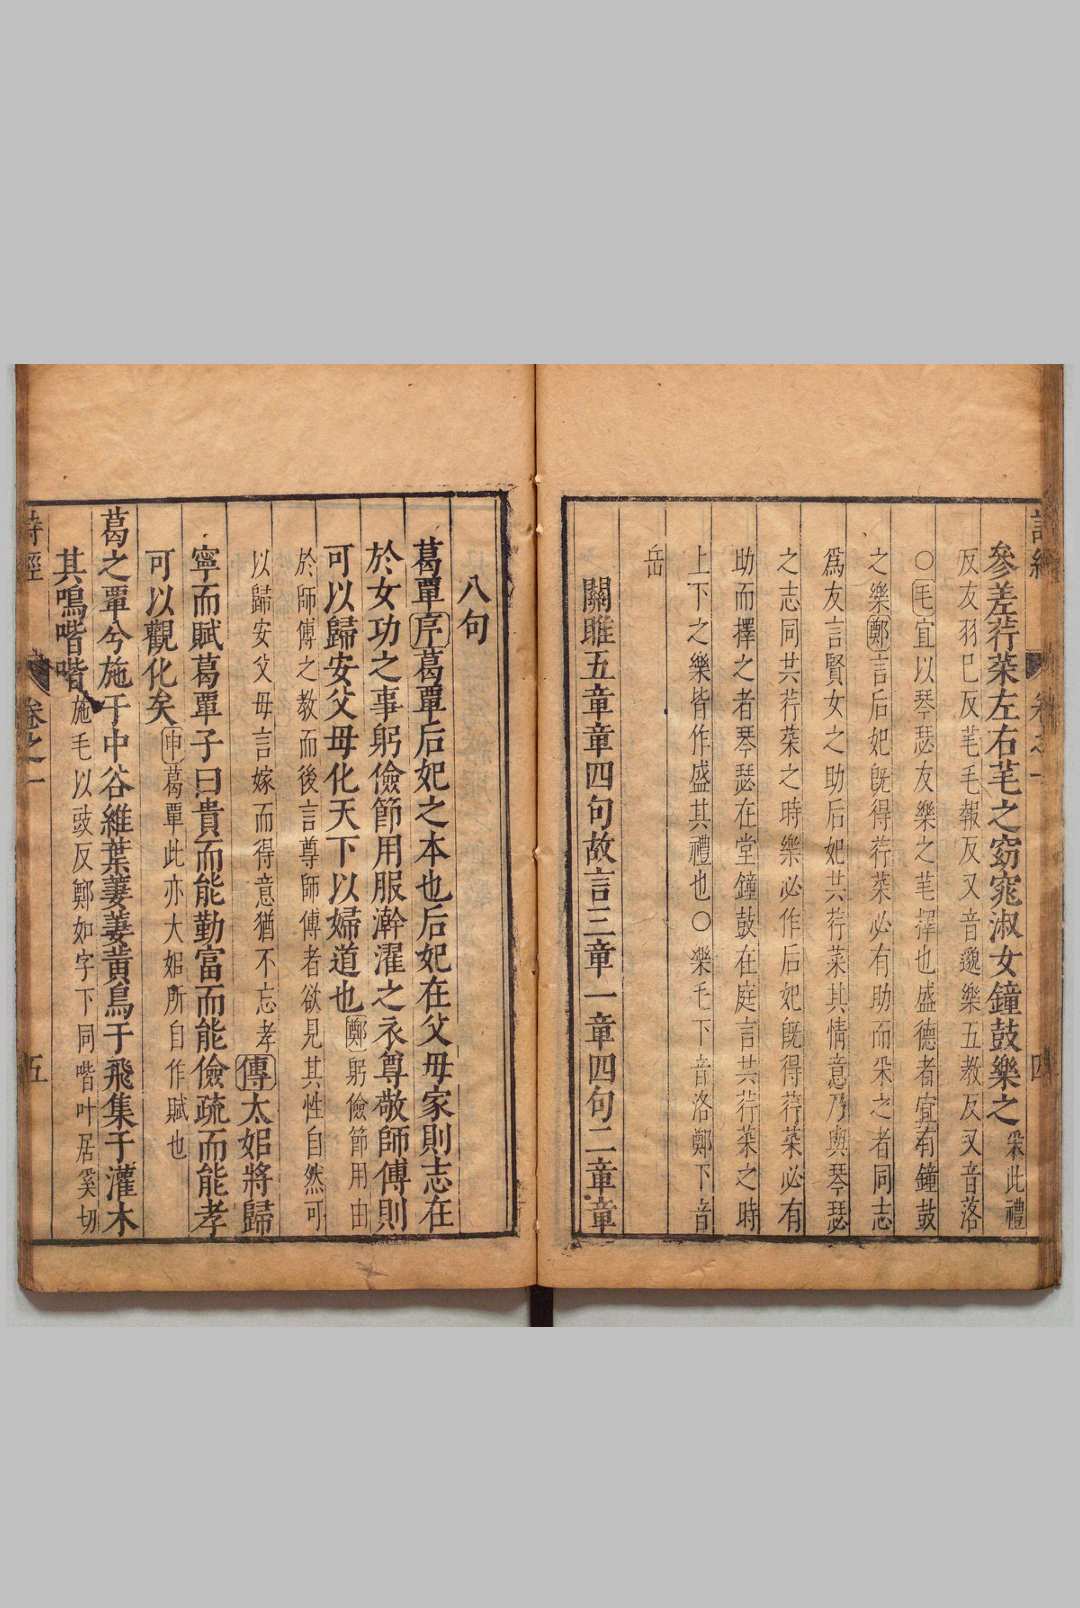 詩經
卷之一
四
參差荇菜左右芼之窈窕淑女鐘鼓樂之采此禮
反友羽已反芼毛報反又音邈樂五教反又音洛
○毛宜以琴瑟友樂之芼擇也盛德者宜有鐘鼓
之樂鄭言后妃旣得荇菜必有助而采之者同志
爲友言賢女之助后妃共荇菜其情意乃與琴瑟
之志同共荇菜之時樂必作后妃旣得荇菜必有
助而擇之者琴瑟在堂鐘鼓在庭言共荇菜之時
上下之樂皆作盛其禮也○樂毛下音洛鄭下音
岳
關雎五章章四句故言三章一章四句二章章
八句
葛覃序葛覃后妃之本也后妃在父母家則志在
於女功之事躬儉節用服澣濯之衣尊敬師傅則
可以歸安父母化天下以婦道也鄭躬儉節用由
於師傅之教而後言尊師傅者欲見其性自然可
以歸安父母言嫁而得意猶不忘孝傳太姒將歸
寧而賦葛覃子曰貴而能勤富而能儉疏而能孝
可以觀化矣申葛覃此亦大姒所自作賦也
葛之覃兮施于中谷維葉萋萋黃鳥于飛集于灌木
其鳴喈喈施毛以豉反鄭如字下同喈叶居奚切
詩經
卷之一
五